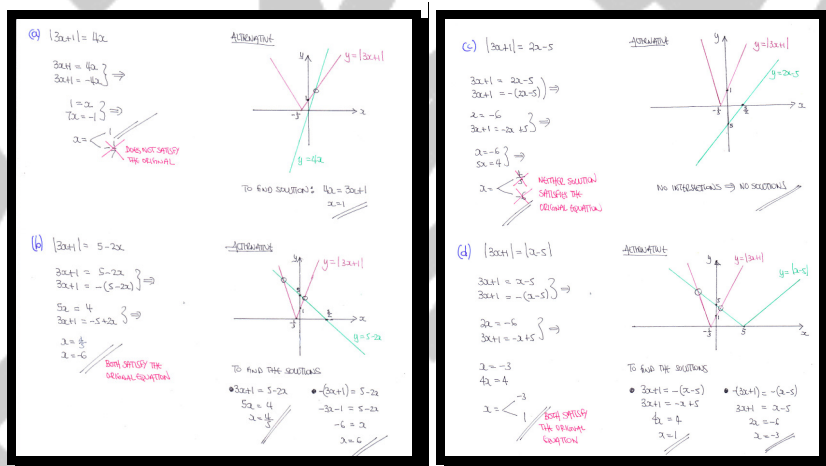 (a) |3x+1| = 4x
3x+1 = 4x
3x+1 = -4x } ⇒
1 = x
7x = -1 } ⇒
x = < 1
-1/7
DOES NOT SATISFY
THE ORIGINAL
ALTERNATIVE
y
y = |3x+1|
1
-1/3
x
y = 4x
TO FIND SOLUTION: 4x = 3x+1
x = 1
(b) |3x+1| = 5-2x
3x+1 = 5-2x
3x+1 = -(5-2x) } ⇒
5x = 4
3x+1 = -5+2x } ⇒
x = 4/5
x = -6
BOTH SATISFY THE
ORIGINAL EQUATION
ALTERNATIVE
y
y = |3x+1|
5
1
-1/3
5/2
x
y = 5-2x
TO FIND THE SOLUTIONS
• 3x+1 = 5-2x
5x = 4
x = 4/5
• -(3x+1) = 5-2x
-3x-1 = 5-2x
-6 = x
x = 6
(c) |3x+1| = 2x-5
3x+1 = 2x-5
3x+1 = -(2x-5) } ⇒
x = -6
3x+1 = -2x+5 } ⇒
x = -6
5x = 4 } ⇒
x = < 4/5
-6
NEITHER SOLUTION
SATISFIES THE
ORIGINAL EQUATION
ALTERNATIVE
y
y = |3x+1|
y = 2x-5
1
-1/3
5/2
x
NO INTERSECTIONS ⇒ NO SOLUTIONS
(d) |3x+1| = |x-5|
3x+1 = x-5
3x+1 = -(x-5) } ⇒
2x = -6
3x+1 = -x+5 } ⇒
x = -3
4x = 4
x = < -3
1
BOTH SATISFY
THE ORIGINAL
EQUATION
ALTERNATIVE
y
y = |3x+1|
y = |x-5|
5
1
-1/3
5
x
TO FIND THE SOLUTIONS
• 3x+1 = -(x-5)
3x+1 = -x+5
4x = 4
x = 1
• -(3x+1) = -(x-5)
3x+1 = x-5
2x = -6
x = -3